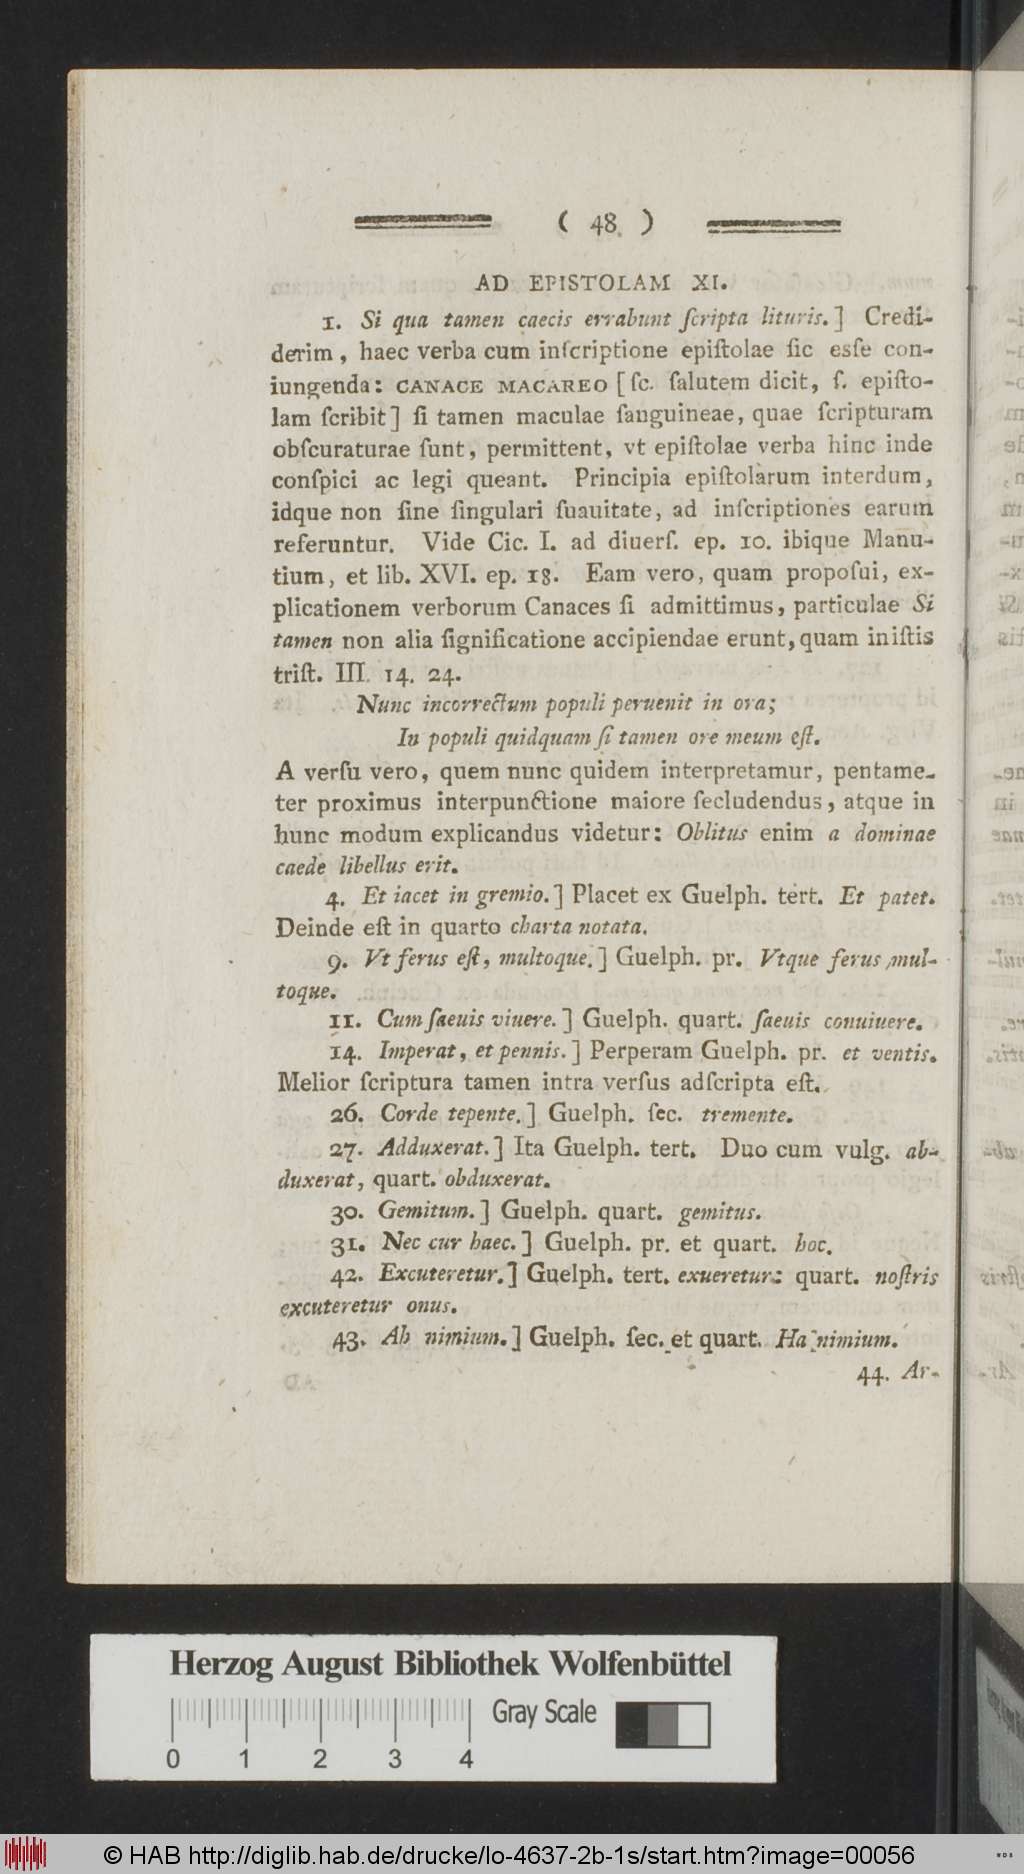 ( 48 )
AD EPISTOLAM XI.
1. Si qua tamen caecis errabunt ſcripta lituris.] Credi-
derim, haec verba cum inſcriptione epiſtolae ſic esſe con-
iungenda: CANACE MACAREO [ſc. ſalutem dicit, ſ. epiſto-
lam ſcribit] ſi tamen maculae ſanguineae, quae ſcripturam
obſcuraturae ſunt, permittent, vt epiſtolae verba hinc inde
conſpici ac legi queant. Principia epiſtolarum interdum,
idque non ſine ſingulari ſuauitate, ad inſcriptiones earum
referuntur. Vide Cic. I. ad diuerſ. ep. 10. ibique Manu-
tium, et lib. XVI. ep. 18. Eam vero, quam propoſui, ex-
plicationem verborum Canaces ſi admittimus, particulae Si
tamen non alia ſignificatione accipiendae erunt, quam in iſtis
triſt. III. 14. 24.
Nunc incorrectum populi peruenit in ora;
In populi quidquam ſi tamen ore meum eſt.
A verſu vero, quem nunc quidem interpretamur, pentame-
ter proximus interpunctione maiore ſecludendus, atque in
hunc modum explicandus videtur: Oblitus enim a dominae
caede libellus erit.
4. Et iacet in gremio.] Placet ex Guelph. tert. Et patet.
Deinde eſt in quarto charta notata.
9. Vt ferus eſt, multoque.] Guelph. pr. Vtque ferus mul-
toque.
11. Cum ſaeuis viuere.] Guelph. quart. ſaeuis conuiuere.
14. Imperat, et pennis.] Perperam Guelph. pr. et ventis.
Melior ſcriptura tamen intra verſus adſcripta eſt.
26. Corde tepente.] Guelph. ſec. tremente.
27. Adduxerat.] Ita Guelph. tert. Duo cum vulg. ab-
duxerat, quart. obduxerat.
30. Gemitum.] Guelph. quart. gemitus.
31. Nec cur haec.] Guelph. pr. et quart. hoc.
42. Excuteretur.] Guelph. tert. exueretur: quart. noſtris
excuteretur onus.
43. Ah nimium.] Guelph. ſec. et quart. Ha nimium.
44. Ar-
Herzog August Bibliothek Wolfenbüttel
Gray Scale
0 1 2 3 4
© HAB http://diglib.hab.de/drucke/lo-4637-2b-1s/start.htm?image=00056